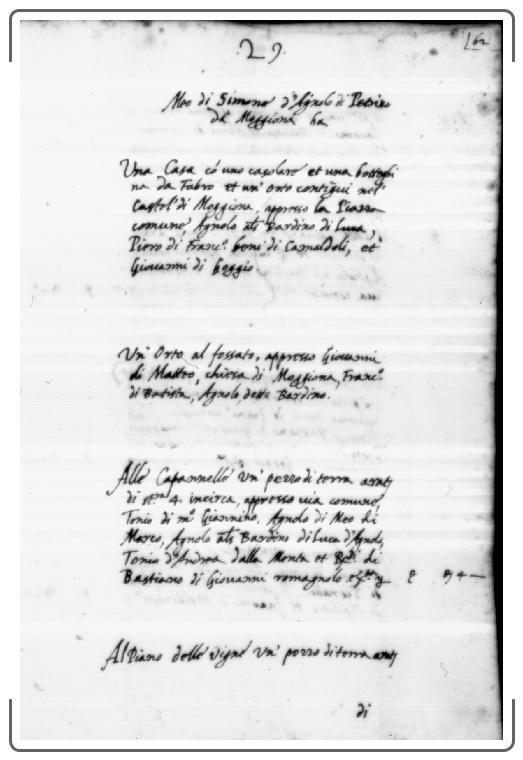 .29.
162
Meo di Simone d'Agnolo di Petrino
da Moggiona ha
Una Casa có uno casolare et una botteghi
na da Fabro et un' orto contigui nel
Castel.º di Moggiona, appresso la Piazza
comune, Agnolo als Bardino di Luca,
Piero di Franc.º beni di Camaldoli, et
Giovanni di Goggio.
Un' Orto al fossato, appresso Giovanni
di Matteo, chiesa di Moggiona, Franc.º
di Batista, Agnolo, detto Bardino.
Alle Capannelle un' pezzo di terra arat
di st.ra 4. incirca, appresso via comune,
Tonio di m.º Giannino, Agnolo di Meo di
Marco, Agnolo als Bardino di Luca d'Agnolo,
Tonio d'Andrea dalla Menta et di
Bastiano di Giovanni romagnolo
Al Piano delle vigne un' pezzo di terra arat
di